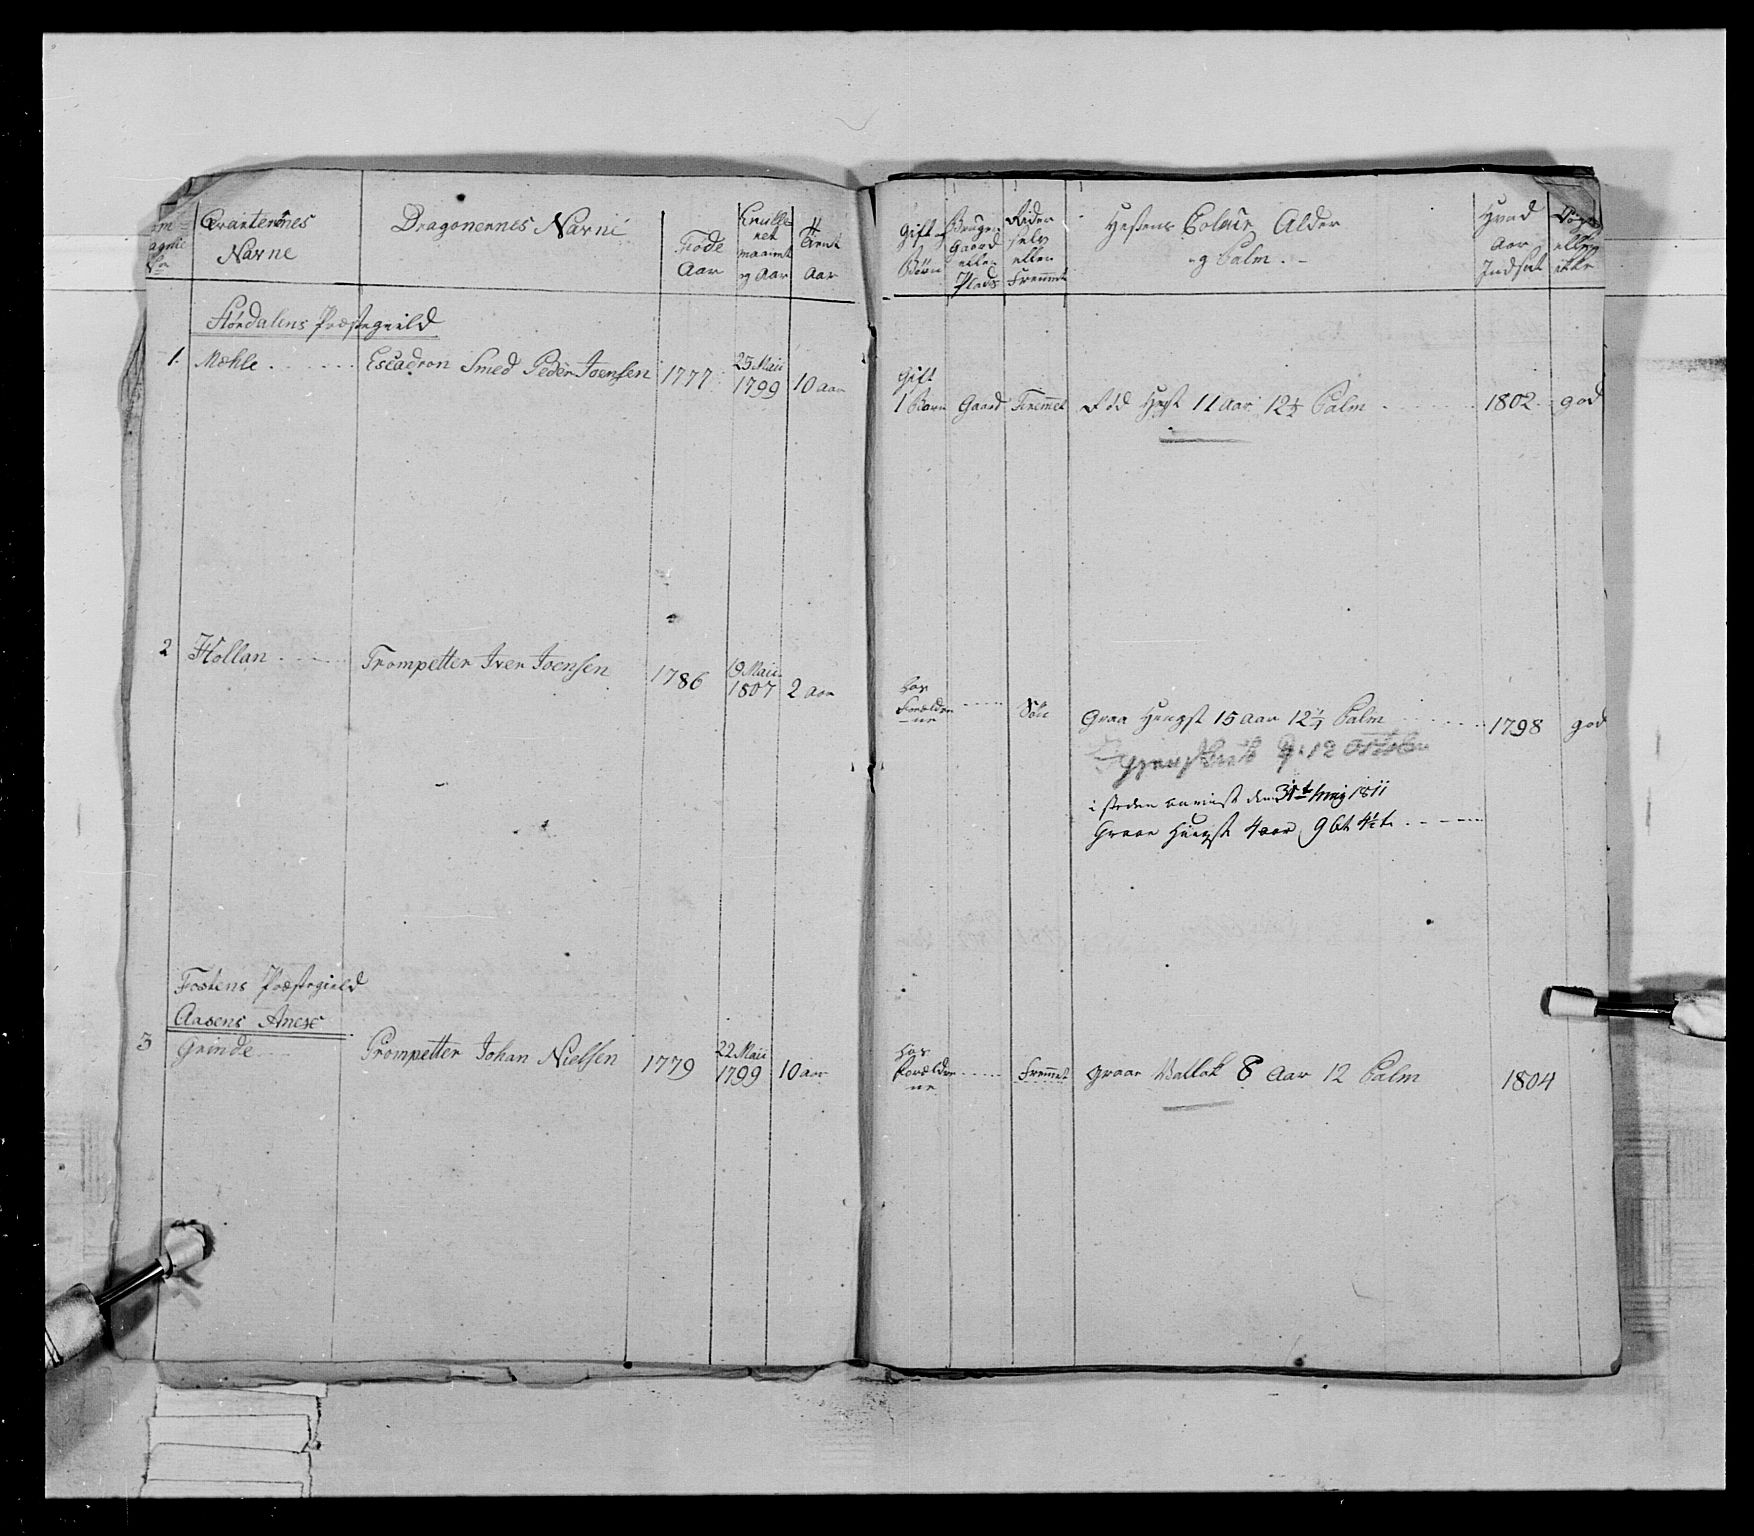 Qvarterernes
Navne
Dragonernes Navne
Føde
Aar
Enrulle
ret
maanet
og Aar
Tient
Aar
Gift
Børn
Bruger
Gaard
eller
Plads
Rider
selv
eller
Fremmet
Hestens Coleur Alder
og Palm
Hvad
Aar
Indsat
eller
ikke
Størdalens Præstegield
1. Mæhle Escadron Smed Peder Joensen 1777 25 Maii 1799 10 aar Gift 1 Barn Gaard Fremmet Rød Hest 11 Aar 12½ Palm 1802 god
2 Hollan Trompetter Iver Joensen 1786 19 Maii 1807 2 aar hos Forældre
ne Graa Hingst 15 aar 12½ Palm 1798 god
12 October
i steden anviist den 31te 1811
Graae Hingst 4 aar 9 4½
Præstegield
Aasens Anexe
3 Grinde Trompetter Johan Nielsen 1779 22 Maii 1799 10 aar hos Forældre
ne Fremmet graae Vallak 8 Aar 12 Palm 1804